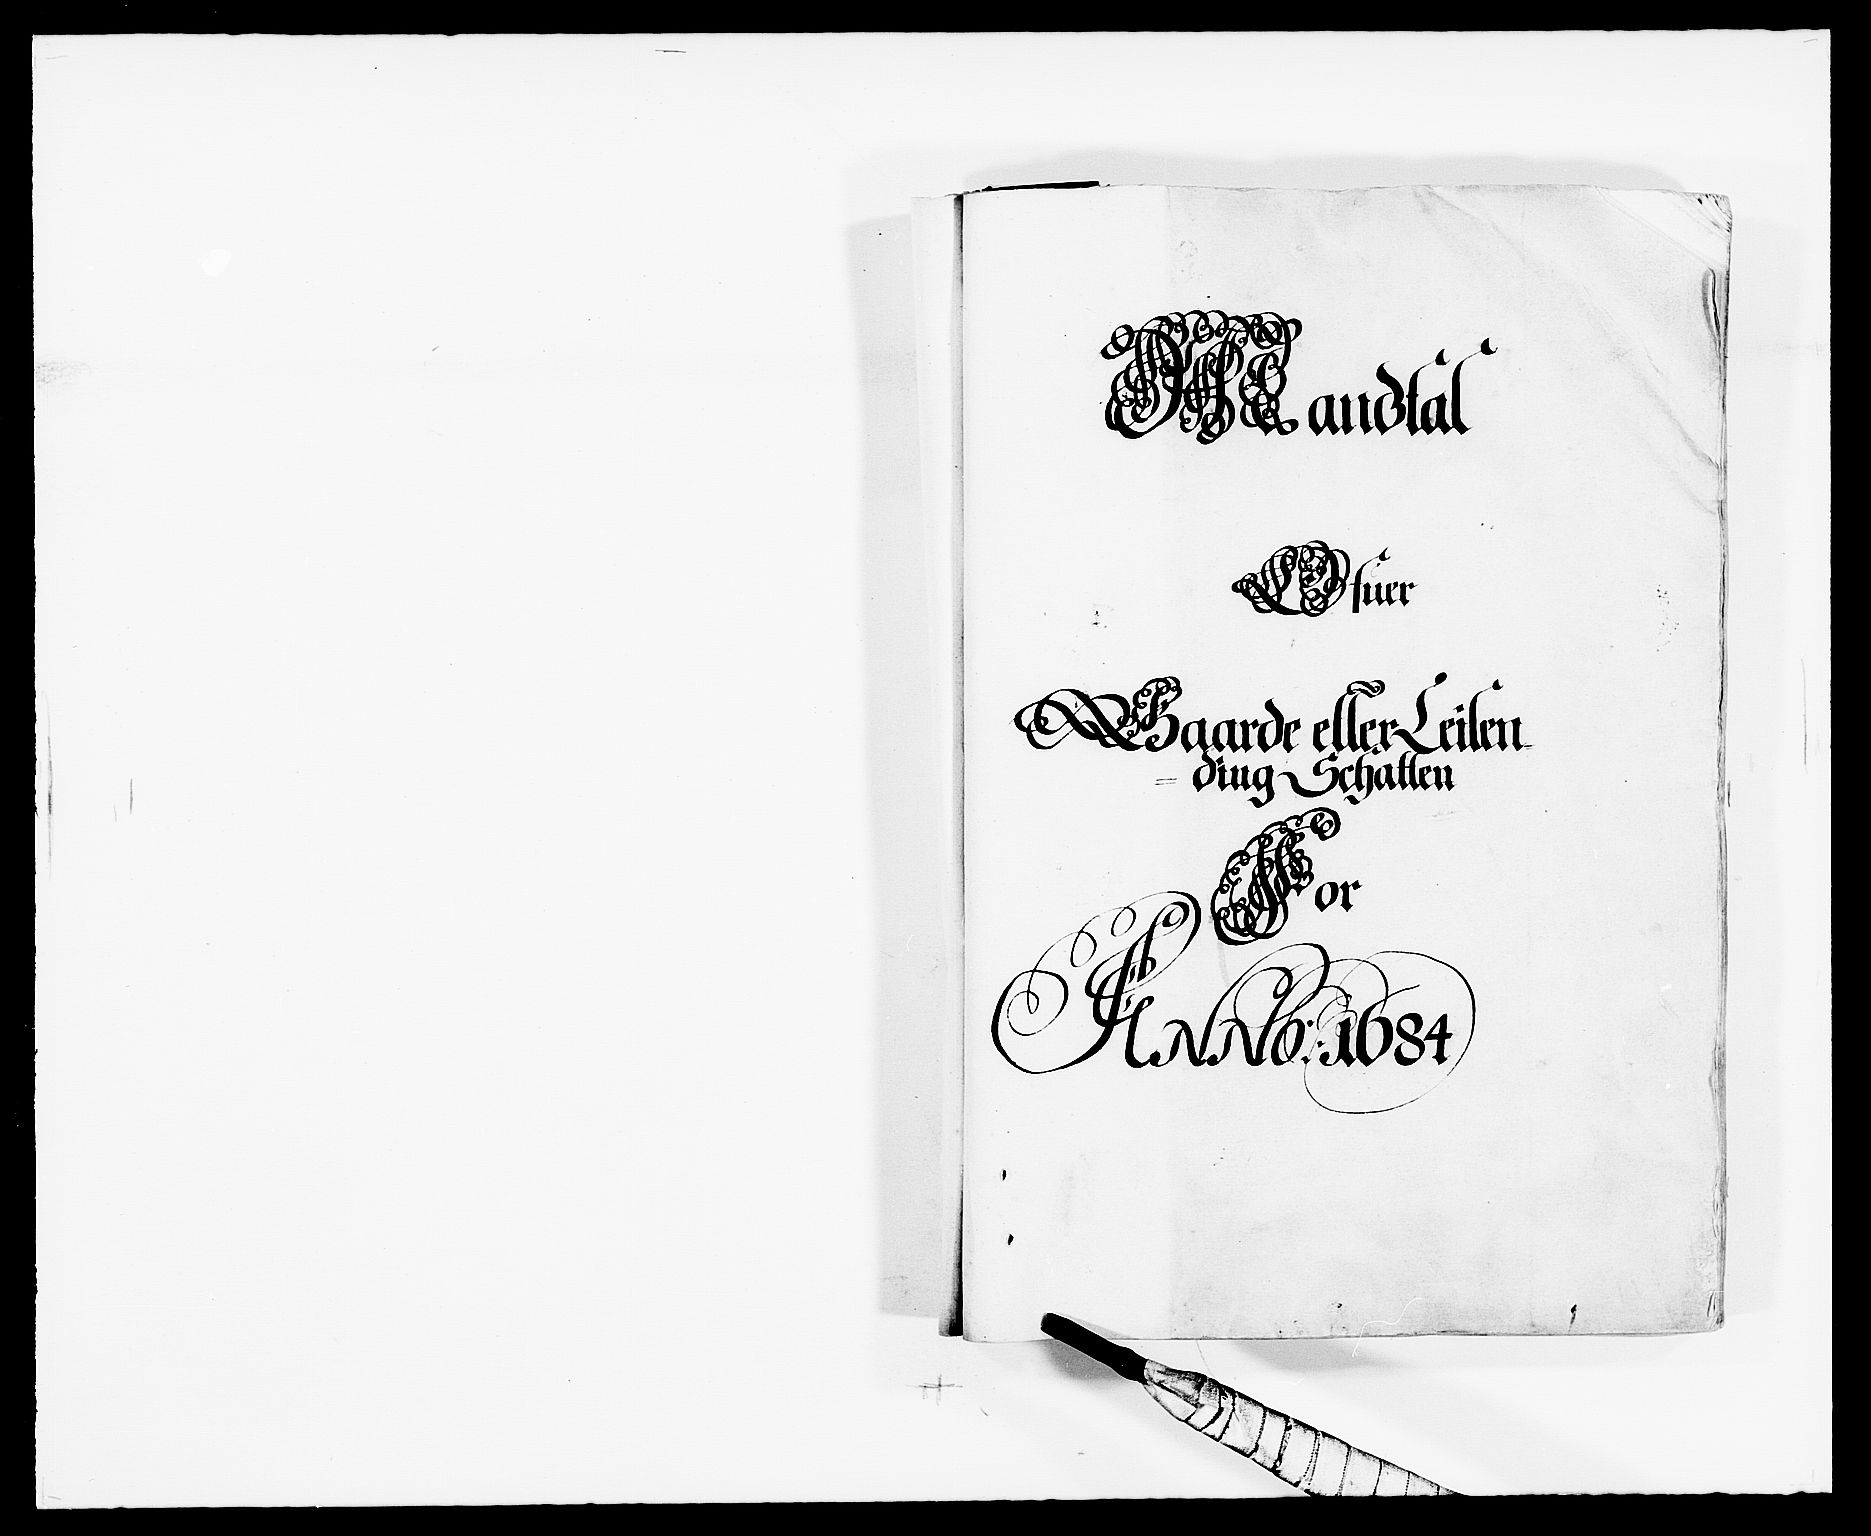 Mandtal
Ofuer
Gaarde eller Leilen-
= ding Schatten
For
ANNO: 1684